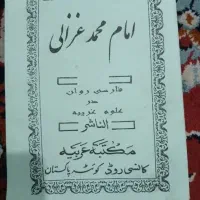 امام محمد غزالی
فارسی روان
در
علوم غریبه
الناشر
مکتبه عربیه
کانسی روڈ کوئٹہ پاکستان